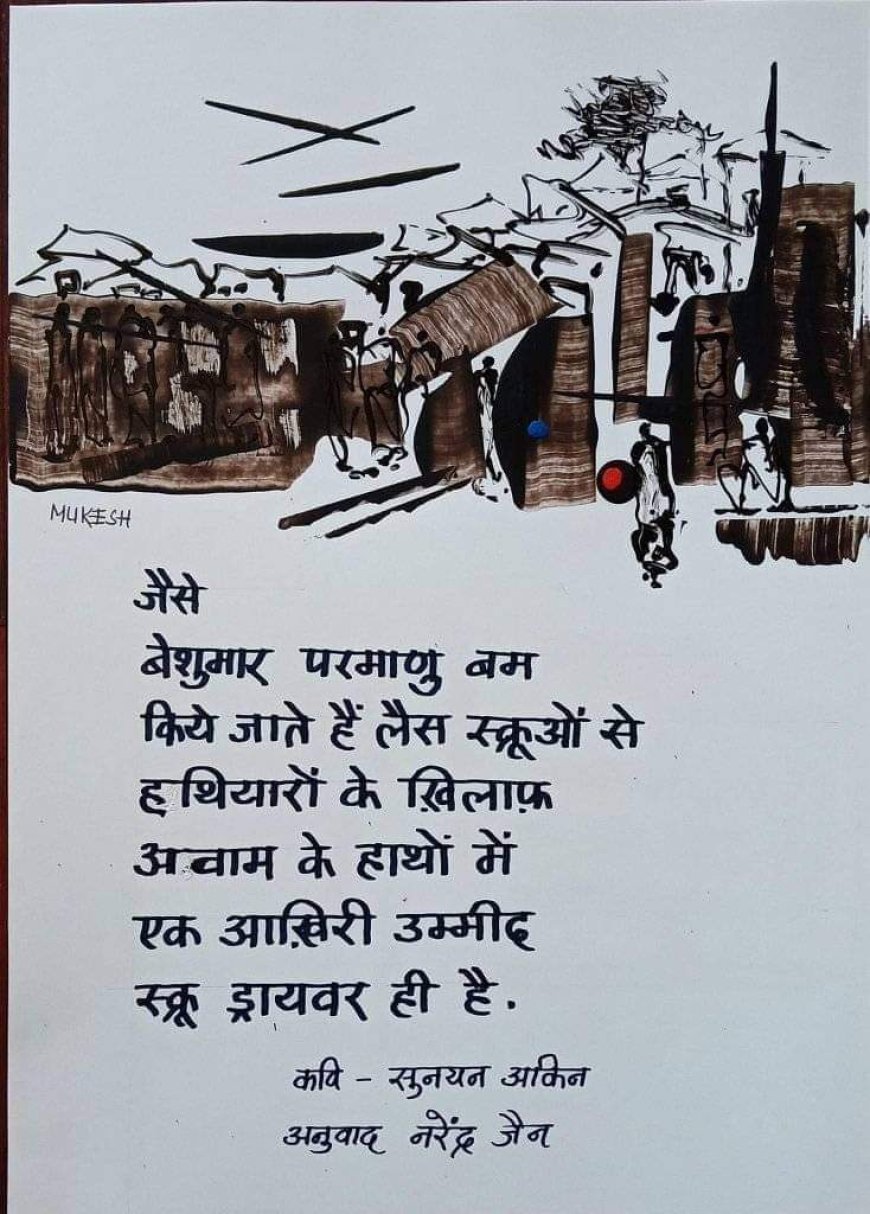 MUKESH
जैसे
बेशुमार परमाणु बम
किये जाते हैं लैस स्क्रूओं से
हथियारों के ख़िलाफ़
अवाम के हाथों में
एक आख़िरी उम्मीद
स्क्रू ड्रायवर ही है.
कवि - सुनयन अकिन
अनुवाद नरेंद्र जैन